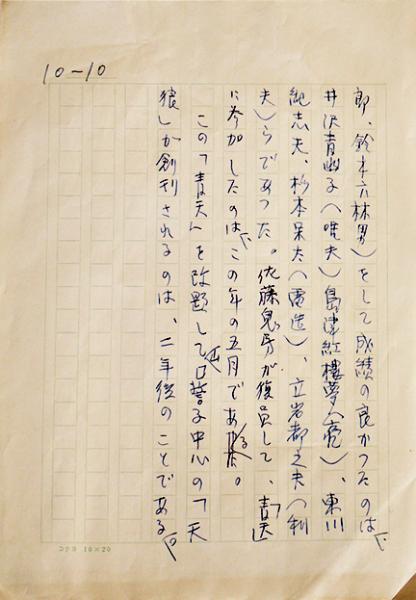 10〜10
郎、鈴木六林男)をして成績の良かつたのは、
井沢青幽子(唯夫)島津紅楼夢(亮)、東川
紀志夫、杉本呆太(電造)、立岩都之夫(利
夫)らであつた。佐藤鬼房が復員して、「青天」
に参加したのは、この年の五月である。
この「青天」を改題して誓子中心の「天
狼」が創刊されるのは、二年後のことである。
コクヨ 10×20